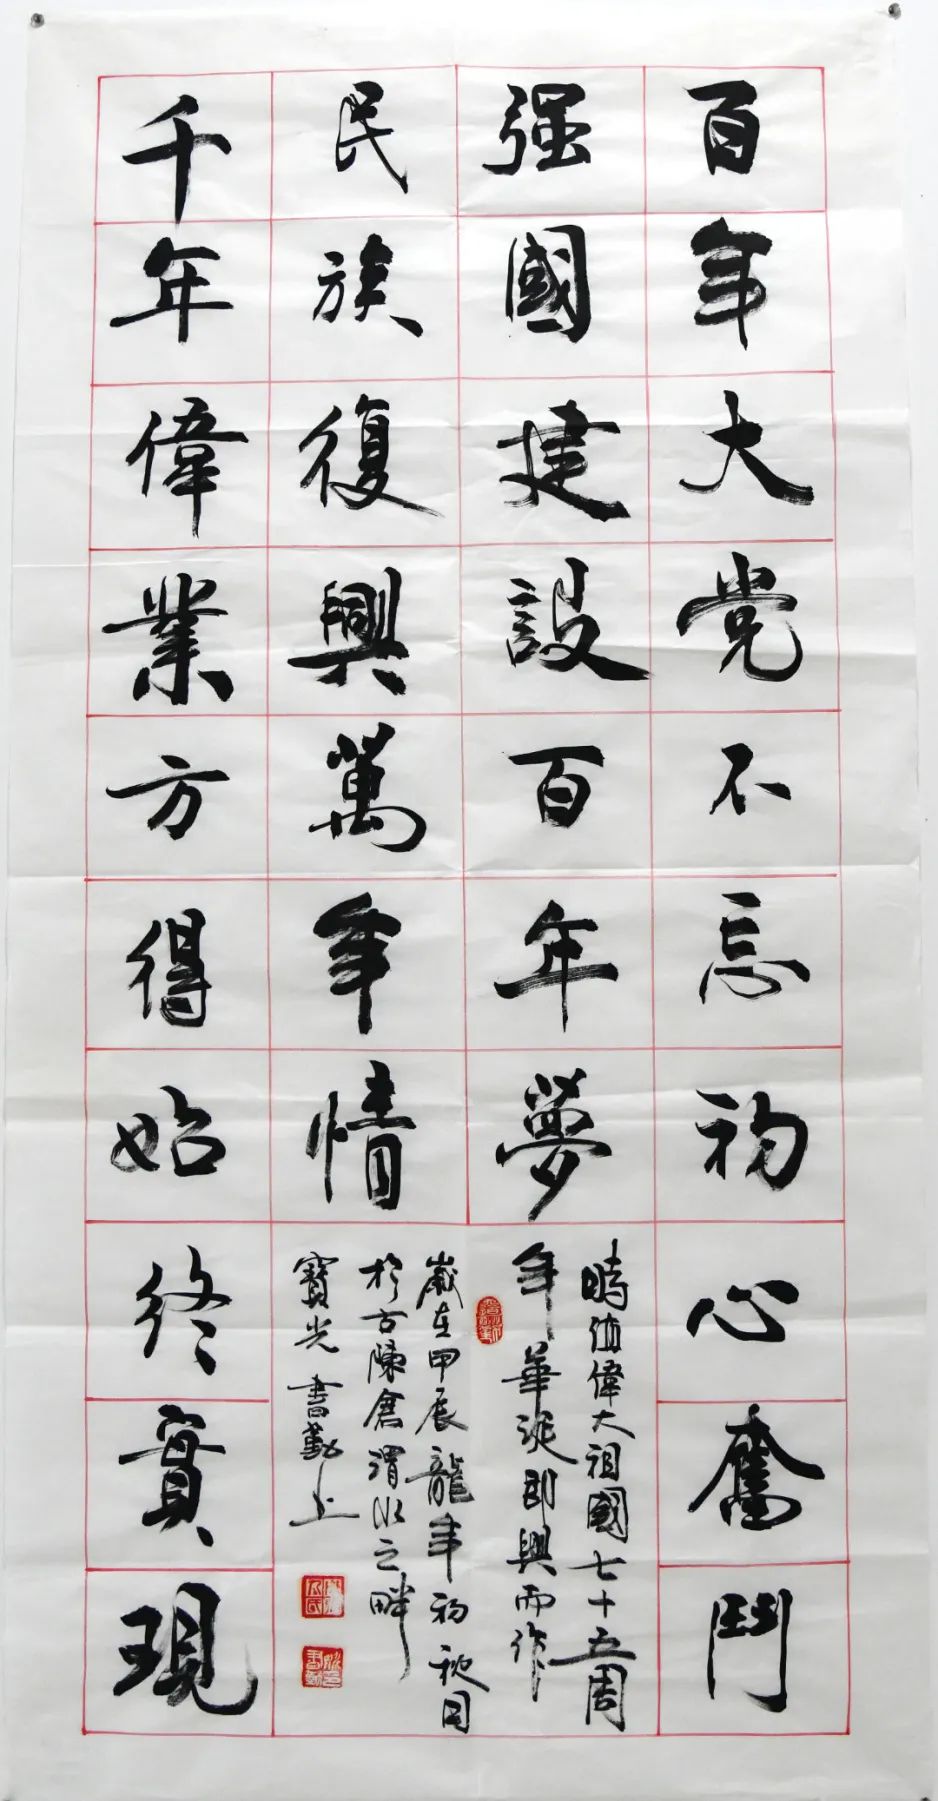 百年大党不忘初心奮鬥
强國建設百年夢
民族復興萬年情
千年偉業方得始終實現
時值偉大祖國七十五周
年華誕即興而作
歲在甲辰龍年初秋月
於古陳倉渭水之畔
寶光書勤上